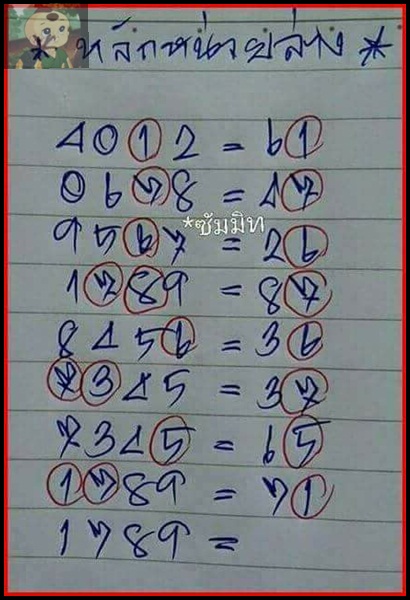 * หลักหน่วยล่าง *
4012 = 61
0678 = 47
9567 = 26
*ซัมมิท
1789 = 87
8456 = 36
7345 = 37
7345 = 65
1789 = 71
1789 =